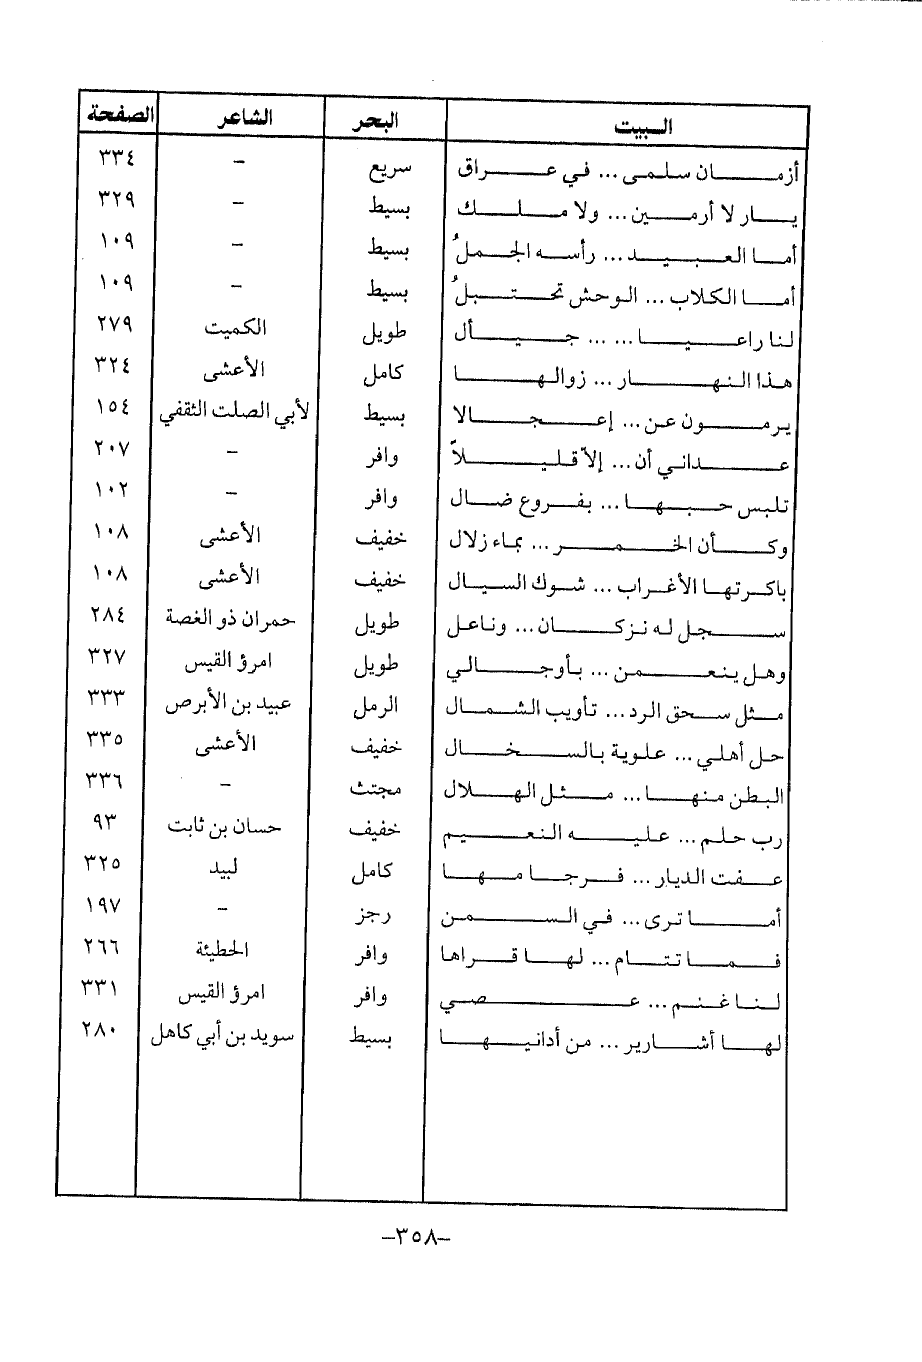 البيت البحر الشاعر الصفحة
أزمان سلمى ... في عراق سريع – ٣٣٤
يار لا أرمين ... ولا ملك بسيط – ٣٢٩
أما العبيد ... رأسه الجملُ بسيط – ١٠٩
أما الكلاب ... الوحش تحتبلُ بسيط – ١٠٩
لنا راعيا ... ... جيأل طويل الكميت ٢٧٩
هذا النهار ... زوالها كامل الأعشى ٣٢٤
يرمون عن ... إعجالا بسيط لأبي الصلت الثقفي ١٥٤
عداني أن ... إلاّ قليلاً وافر – ٢٠٧
تلبس حبها ... بفروع ضال وافر – ١٠٢
وكأن الخمر ... بماء زلال خفيف الأعشى ١٠٨
باكرتها الأغراب ... شوك السيال خفيف الأعشى ١٠٨
سجل له نزكان ... وناعل طويل حمران ذو الغصة ٢٨٤
وهل ينعمن ... بأوجالي طويل امرؤ القيس ٣٢٧
مثل سحق الرد ... تأويب الشمال الرمل عبيد بن الأبرص ٣٣٣
حل أهلي ... علوية بالسخال خفيف الأعشى ٣٣٥
البطن منها ... مثل الهلال مجتث – ٣٣٦
رب حلم ... عليه النعيم خفيف حسان بن ثابت ٩٣
عفت الديار ... فرجا مها كامل لبيد ٣٢٥
أما ترى ... في السمن رجز – ١٩٧
فما تتام ... لها قراها وافر الحطيئة ٢٦٦
لنا غنم ... عصي وافر امرؤ القيس ٣٣١
لها أشارير ... من أدانيها بسيط سويد بن أبي كاهل ٢٨٠
–٣٥٨–